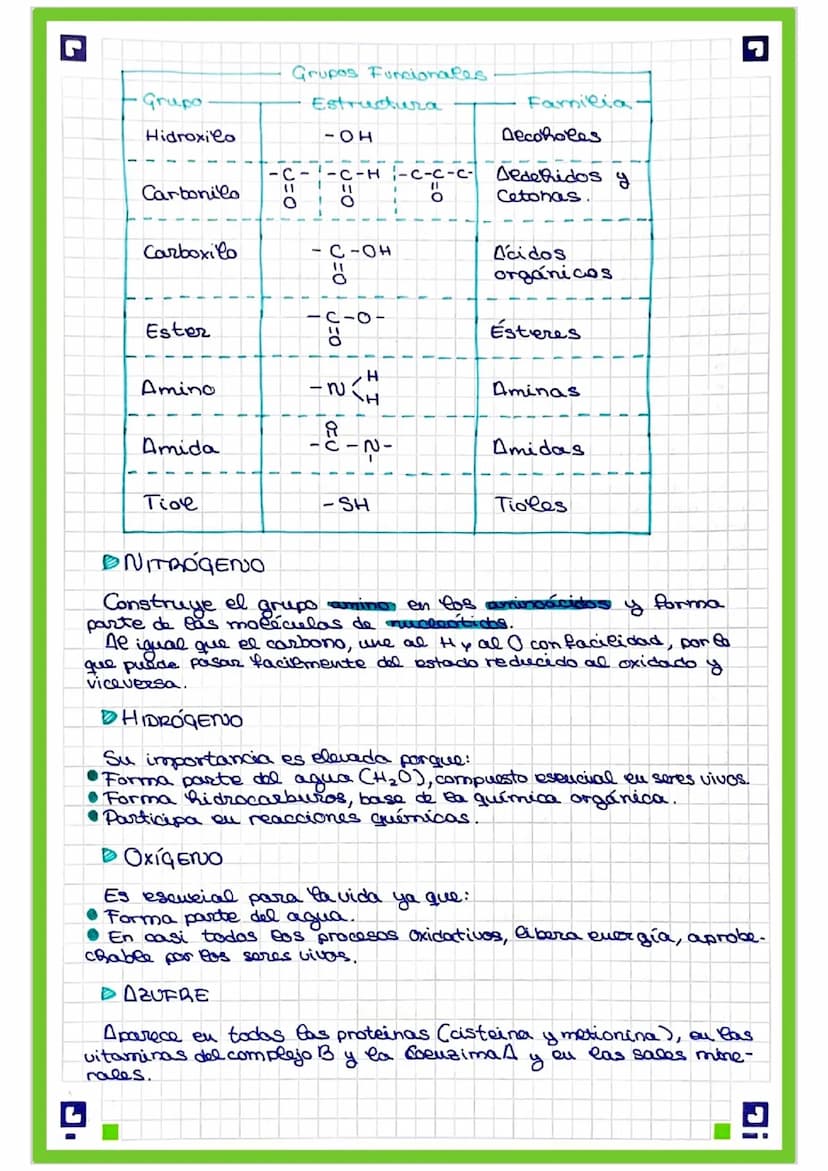 Grupos Funcionales
Grupo Estructura Familia
Hidroxilo -OH Alcoholes
-C- -C-H -C-C-C- Aldehidos y
Carbonilo O O O Cetonas.
Carboxilo -C-OH Ácidos
O orgánicos
-C-O-
Ester O Ésteres
H
Amino -N Aminas
H
O
Amida -C-N- Amidas
Tiol -SH Tioles
NITRÓGENO
Construye el grupo amino en los aminoácidos y forma
parte de las moléculas de nucleótidos.
Al igual que el carbono, une al H y al O con facilidad, por lo
que puede pasar facilmente del estado reducido al oxidado y
viceversa.
HIDRÓGENO
Su importancia es elevada porque:
Forma parte del agua (H₂O), compuesto esencial en seres vivos.
Forma hidrocarburos, base de la química orgánica.
Participa en reacciones químicas.
OXÍGENO
Es esencial para la vida ya que:
Forma parte del agua.
En casi todos los procesos oxidativos, libera energía, aprobe-
chable por los seres vivos.
AZUFRE
Aparece en todas las proteinas (cisteina y metionina), en las
vitaminas del complejo B y la Coenzima A y en las sales mine-
rales.